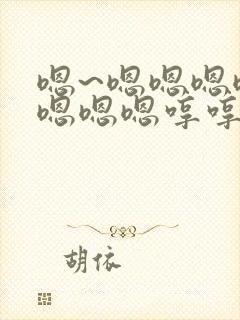 嗯~嗯嗯嗯
嗯嗯嗯哼哼
胡依